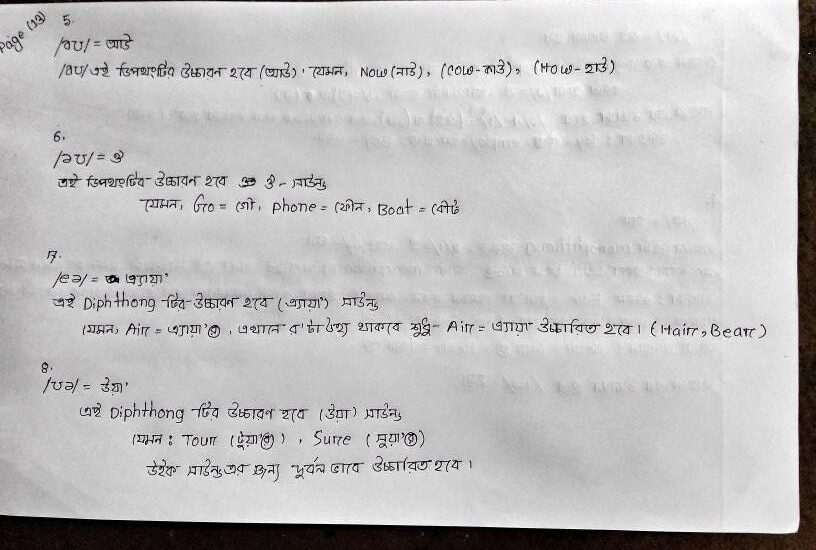 Page (12)
5.
/aʊ/ = আউ
/aʊ/ এই ডিপথংটির উচ্চারন হবে (আউ)। যেমন, Now (নাউ), (Cow - কাউ), (How - হাউ)
6.
/əʊ/ = ঔ
এই ডিপথংটির উচ্চারন হবে ঔ - সাউন্ড
যেমন, Go = গৌ, phone = ফৌন, Boat = বৌট
7.
/eə/ = এ্যায়া'
এই Diphthong টির উচ্চারন হবে (এ্যায়া') সাউন্ড
যেমন, Air = এ্যায়া'র, এখানে র' টা উহ্য থাকবে শুধু - Air = এ্যায়া' উচ্চারিত হবে। (Hair, Bear)
8.
/ʊə/ = উয়া'
এই Diphthong টির উচ্চারণ হবে (উয়া) সাউন্ড
যেমন : Tour (ট্যুয়া'র), Sure (সুয়া'র)
উইক সাউন্ড এর জন্য দূর্বল ভাবে উচ্চারিত হবে।